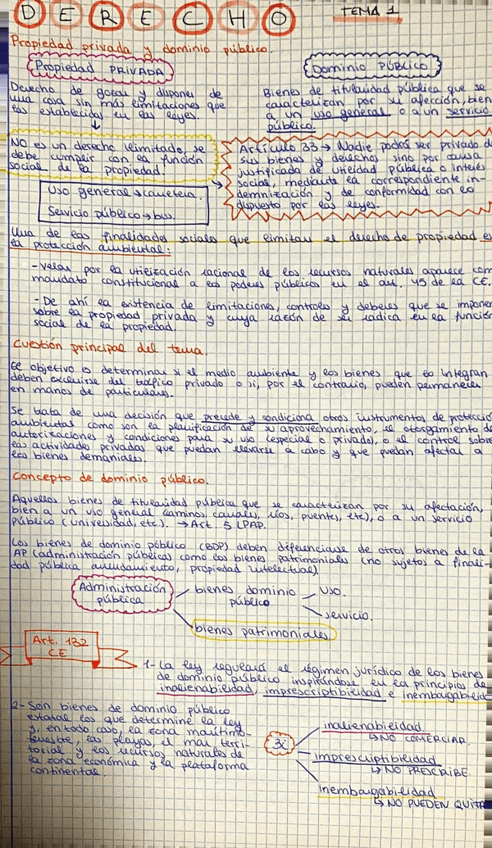 DERECHO
TEMA 1
Propiedad privada y dominio público.
Propiedad PRIVADA
Derecho de gozar y disponer de
una cosa sin más limitaciones que
las establecidas en las leyes.
NO es un derecho ilimitado, se
debe cumplir con la función
social de la propiedad.
Uso general → carretera.
Servicio público → bus.
Dominio PÚBLICO
Bienes de titularidad pública que se
caracterizan por su afección, bien
a un uso general o a un servicio
público.
Artículo 33 → Nadie podrá ser privado de
sus bienes y derechos sino por causa
justificada de utilidad pública o interés
social, mediante la correspondiente in-
demnización y de conformidad con lo
dispuesto por las leyes.
Una de las finalidades sociales que limitan el derecho de propiedad es
la protección ambiental:
- Velar por la utilización racional de los recursos naturales aparece com
mandato constitucional a los poderes públicos en el art. 45 de la CE.
- De ahí la existencia de limitaciones, controles y deberes que se imponen
sobre la propiedad privada y cuya razón de ser radica en la función
social de la propiedad.
Cuestión principal del tema.
El objetivo es determinar si el medio ambiente y los bienes que lo integran
deben excluirse del tráfico privado o si, por el contrario, pueden permanecer
en manos de particulares.
Se trata de una decisión que precede y condiciona otros instrumentos de protección
ambiental como son la planificación de su aprovechamiento, el otorgamiento de
autorizaciones y condiciones para su uso (especial o privado), o el control sobre
las actividades privadas que puedan llevarse a cabo y que puedan afectar a
los bienes demaniales.
Concepto de dominio público.
Aquellos bienes de titularidad pública que se caracterizan por su afectación,
bien a un uso general (caminos, canales, ríos, puentes, etc), o a un servicio
público (universidad, etc). → Art 5 LPAP.
Los bienes de dominio público (BDP) deben diferenciarse de otros bienes de la
AP (administración pública) como los bienes patrimoniales (no sujetos a finali-
dad pública arrendamiento, propiedad intelectual)
Administración
pública
bienes dominio
público
uso.
servicio.
bienes patrimoniales
Art. 132
CE
1- La ley regulará el régimen jurídico de los bienes
de dominio público inspirándose en los principios de
inalienabilidad, imprescriptibilidad e inembargabilidad
2- Son bienes de dominio público
estatal los que determine la ley
y, en todo caso, la zona marítimo-
terrestre, las playas, el mar terri-
torial y los recursos naturales de
la zona económica y la plataforma
continental.
3i
inalienabilidad
↳ NO COMERCIAR
imprescriptibilidad
↳ NO PRESCRIBE
inembargabilidad
↳ NO PUEDEN QUITAR